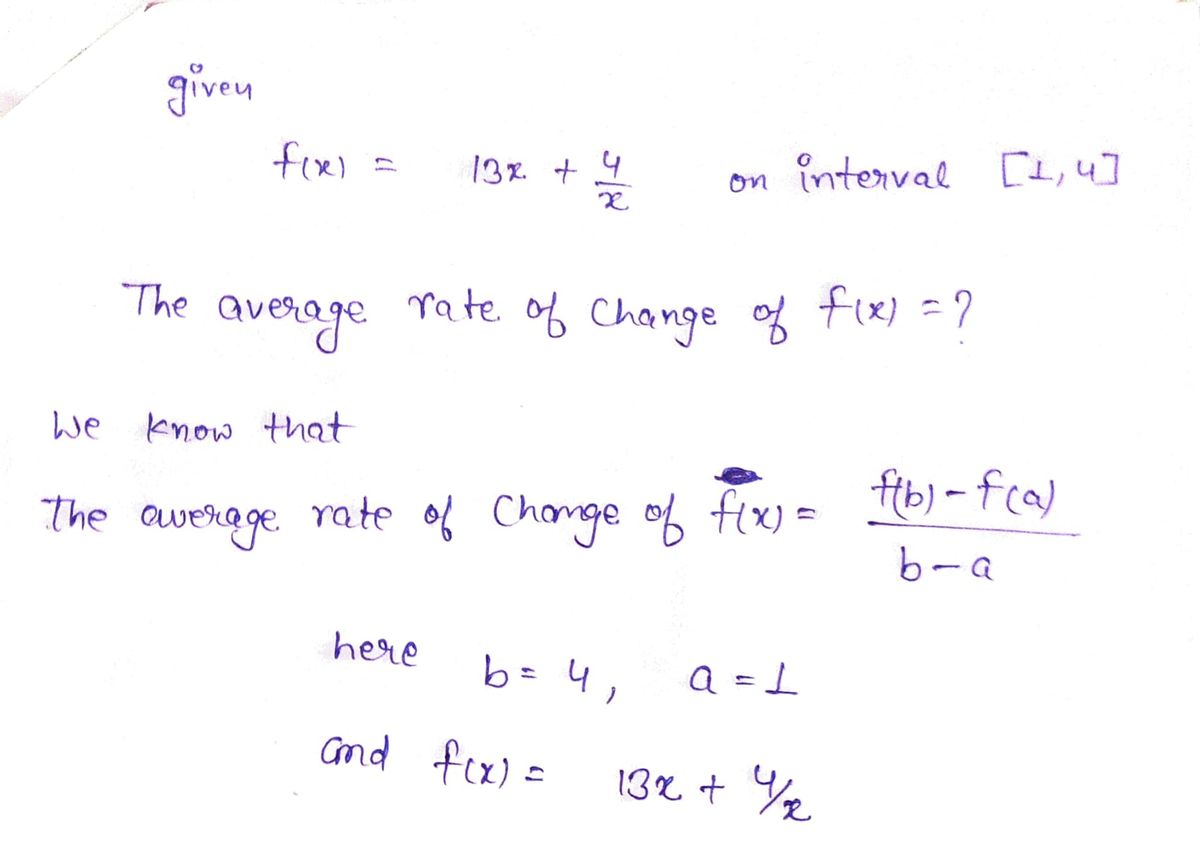 given
f(x) = 13x + 4/x on interval [1,4]
The average rate of Change of f(x) = ?
We know that
The average rate of Change of f(x) = f(b) - f(a) / b - a
here b = 4, a = 1
and f(x) = 13x + 4/x